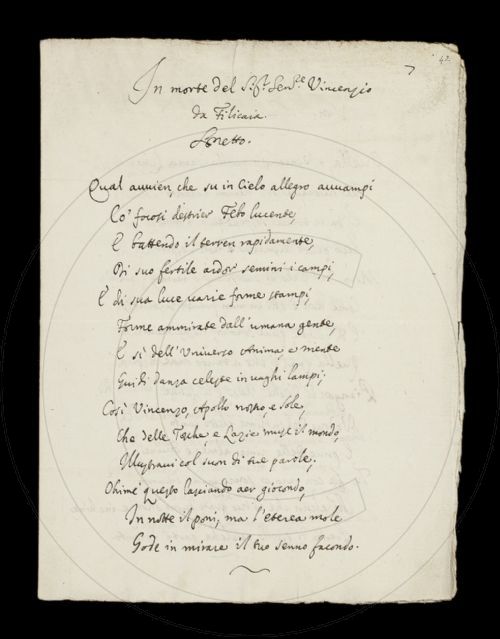 42.
7
In morte del Sig.r Sen.re Vincenzio
da Filicaia.
Sonetto.
Qual avvien, che su in Cielo allegro avvampi
Co' focosi destrier Febo lucente,
E battendo il terren rapidamente,
Di suo fertile ardor semini i campi,
E di sua luce varie forme stampi,
Forme ammirate dall' umana gente,
E sì dell' Universo Anima, e mente
Guidi danza celeste in vaghi lampi;
Così Vincenzo, Apollo nostro, e Sole,
Che delle Tosche, e Lazie muse il mondo,
Illustravi col suon di tue parole,
Ohimè questo lasciando aer giocondo,
In notte il poni, ma l'eterea mole
Gode in mirare il tuo senno facondo.